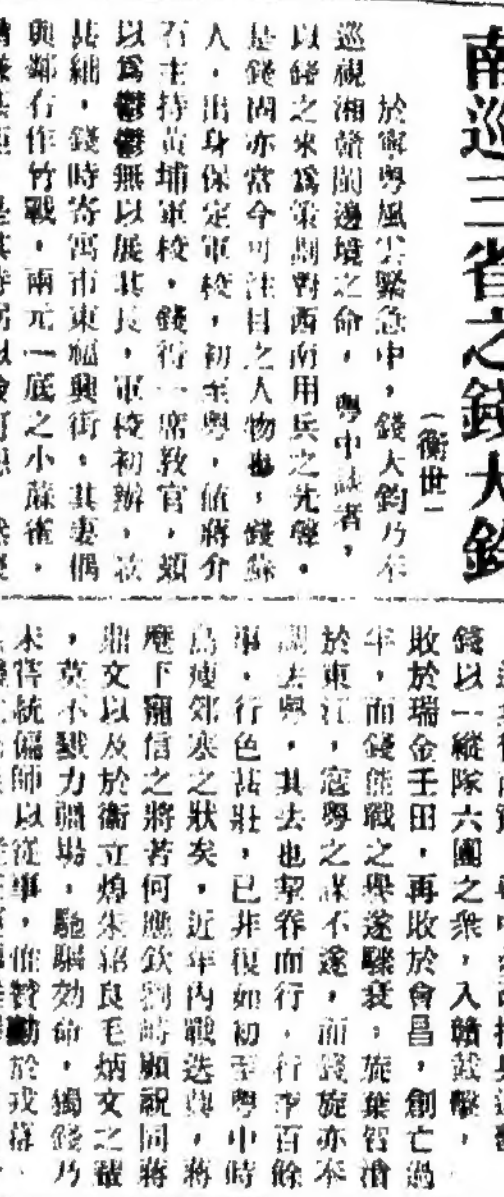 南巡三省之錢大鈞
（衡世）
於寧粵風雲緊急中，錢大鈞乃奉
巡視湘贛閩邊境之命，粵中談者，
以錢之來為策劃對西南用兵之先聲。
是錢固亦當今可注目之人物也，錢蘇
人，出身保定軍校，初至粵，值蔣介
石主持黃埔軍校，錢得一席教官，頗
以為鬱鬱無以展其長，軍校初辦，款
甚細，錢時寄寓市東福興街，其妻偶
與鄰右作竹戰，兩元一底之小蔴雀，
錢以一縱隊六團之衆，入贛截擊，
敗於瑞金壬田，再敗於會昌，創亡過
半，而錢能戰之譽遂驟衰，旋葉智清
於東江，寇粵之謀不遂，而錢旋亦奉
調去粵，其去也挈眷而行，行李百餘
事，行色甚壯，已非復如初至粵中時
島瘦郊寒之狀矣，近年內戰迭興，蔣
麾下寵信之將若何應欽劉峙顧祝同蔣
鼎文以及於衞立煌朱紹良毛炳文之輩
，莫不戮力疆場，馳驅効命，獨錢乃
未得統偏師以從事，僅贊勷於戎幕